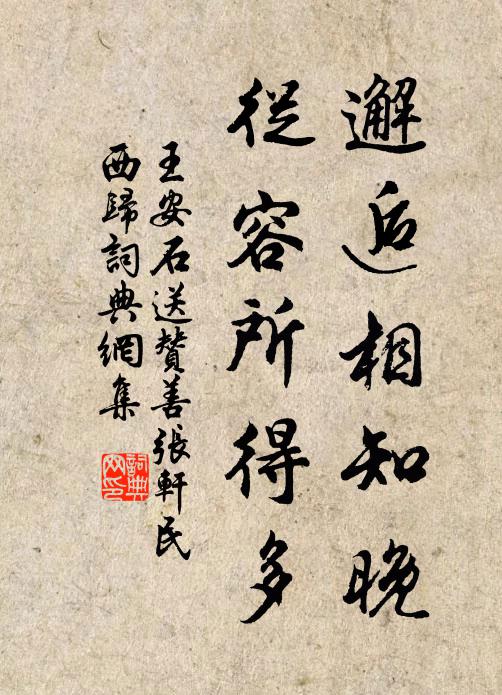 邂逅相知晚
從容所得多
王安石送贊善張軒民
西歸詞典網集
詞典
网印